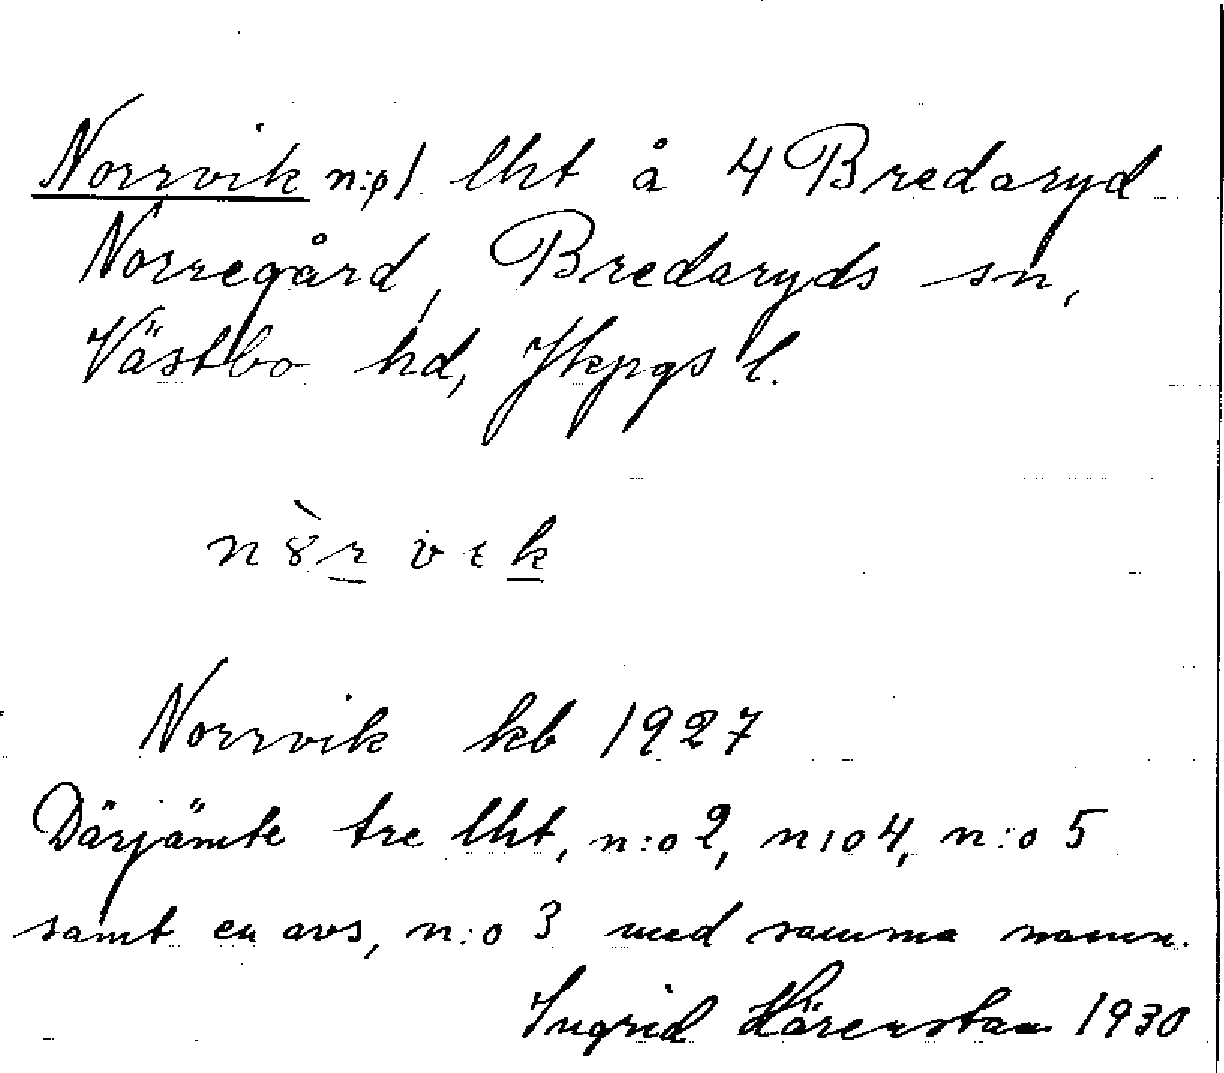 Norrvik n:o 1 lht å 4 Bredaryd
Norregård, Bredaryds sn,
Västbo hd, Jkpgs l.
Norrvik kb 1927
Därjämte tre lht, n:o 2, n:o 4, n:o 5
samt en avs, n:o 3 med samma namn.
Ingrid 1930